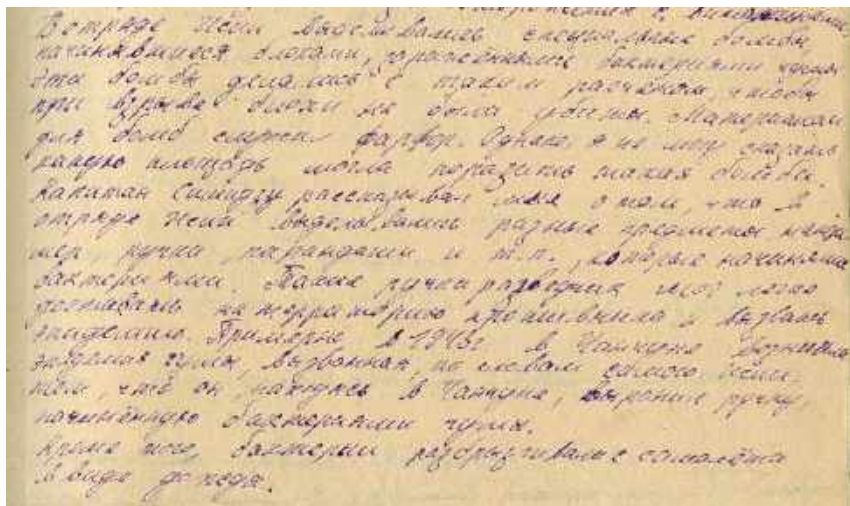 В отряде Исии выделывались специальные бомбы,
начинявшиеся блохами, заражёнными бактериями чумы.
Эти бомбы делались с таким расчётом, чтобы
при взрыве блохи не были убиты. Материалом
для бомб служил фарфор. Однако, я не могу сказать
какую площадь могла поразить такая бомба.
Капитан Симидзу рассказывал мне о том, что в
отряде Исии выделывались разные предметы, напри
мер, ручки, карандаши и т.п., которые начиняли
бактериями. Такие ручки разведчик мог легко
на территорию противника и вызвать
эпидемию. Примерно в в Чанчуне возникла
эпидемия чумы, вызванная, по словам самого Исии
тем, что он, находясь в Чанчуне, выронил ручку,
начинённую бактериями чумы.
Кроме того, бактерии разбрызгивались с самолёта
в виде дождя.